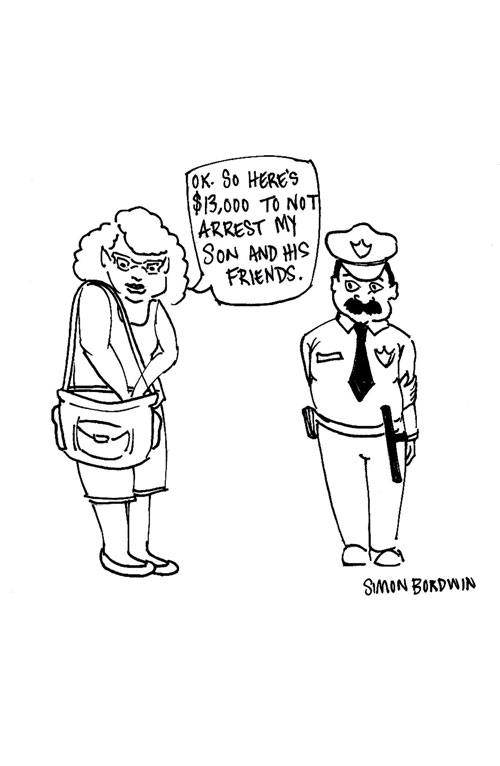 OK. SO HERE'S
$13,000 TO NOT
ARREST MY
SON AND HIS
FRIENDS.
SIMON BORDWIN